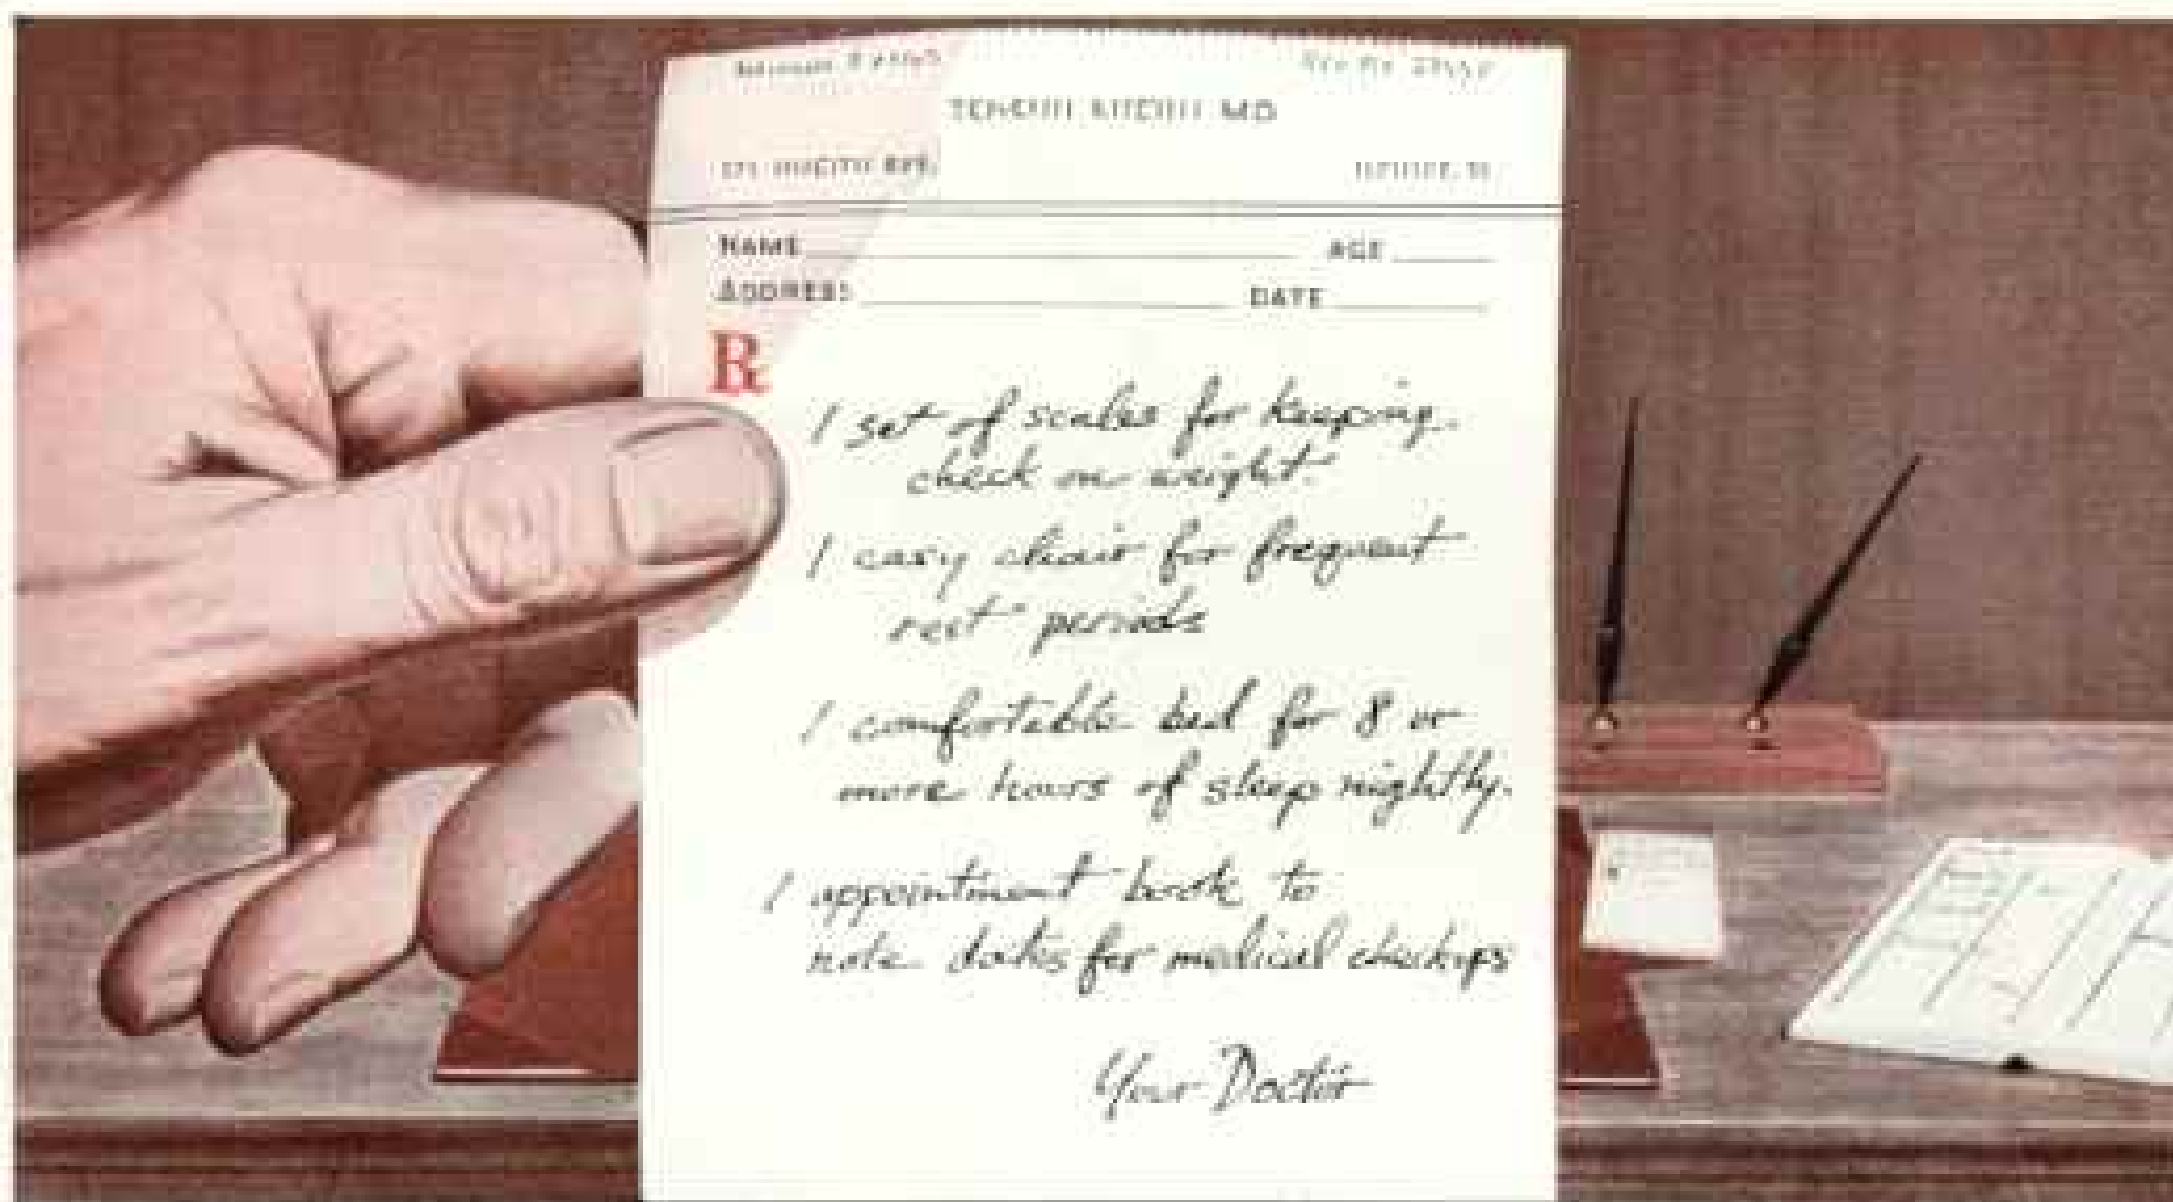 MD
AVE.
NAME AGE
ADDRESS DATE
Rx
1 set of scales for keeping
check on weight.
1 easy chair for frequent
rest periods
1 comfortable bed for 8 or
more hours of sleep nightly.
1 appointment book to
note dates for medical checkups
Your Doctor